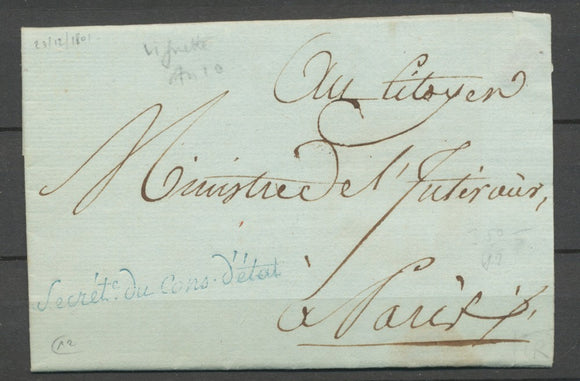 23/12/1801
vignette
An 10
Au Citoyen
Ministre de l'Intérieur,
Secrét.e du Cons. d'état
à Paris